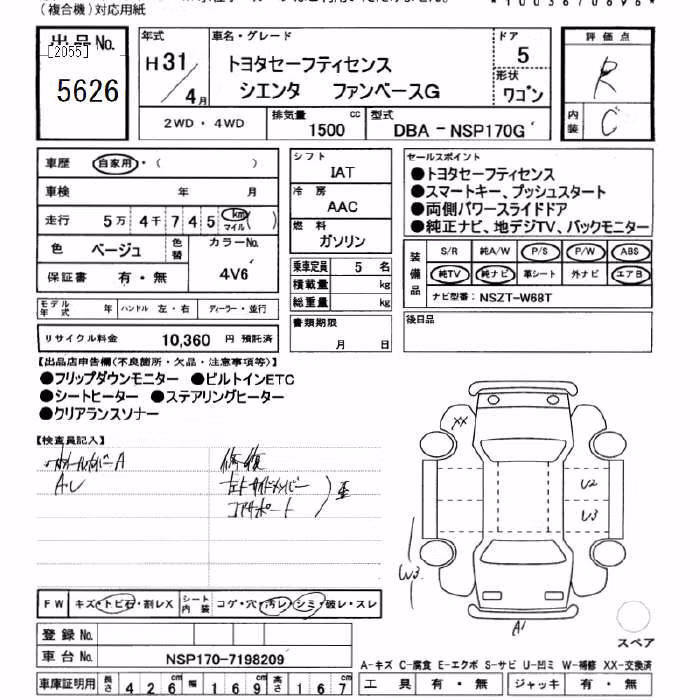 (複合機)対応用紙
出品No.
[2055]
5626
年式
H31/4月
車名・グレード
トヨタセーフティセンス
シエンタ ファンベースG
ドア
5
形状
ワゴン
評価点
R
内装
C
2WD・4WD
排気量 1500 cc
型式 DBA-NSP170G
車歴 自家用・( )
車検 年 月
走行 5万 4千 7 4 5 km マイル ( )
色 ベージュ 色替
カラーNo.
4V6
保証書 有・無
モデル年式 年 ハンドル 左・右 ディーラー・並行
リサイクル料金 10,360 円 預託済
シフト
IAT
冷房
AAC
燃料
ガソリン
乗車定員 5 名
積載量 kg
総重量 kg
書類期限
月 日
セールスポイント
●トヨタセーフティセンス
●スマートキー、プッシュスタート
●両側パワースライドドア
●純正ナビ、地デジTV、バックモニター
装備品
S/R 純A/W P/S P/W ABS
純TV 純ナビ 革シート 外ナビ エアB
ナビ型番: NSZT-W68T
後日品
【出品店申告欄(不良箇所・欠品・注意事項等)】
●フリップダウンモニター ●ビルトインETC
●シートヒーター ●ステアリングヒーター
●クリアランスソナー
【検査員記入】
A・U
修復
コアサポート
歪
XX
U2
U3
W3
A1
スペア
FW キズ・トビ石・割レX シート内装 コゲ・穴・汚レ・シミ・破レ・スレ
登録No.
車台No. NSP170-7198209
車庫証明用 長さ 426cm 幅 169cm 高さ 167cm
A-キズ C-腐食 E-エクボ S-サビ U-凹ミ W-補修 XX-交換済
工具 有・無 ジャッキ 有・無